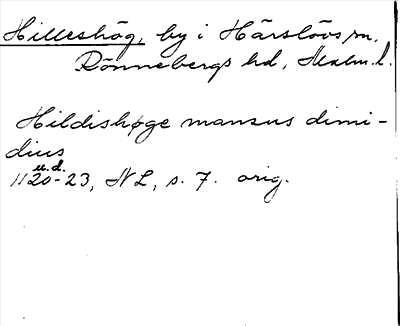 Hilleshög, by i Härslövs sn,
Rönnebergs hd, Malm. l.
Hildishøge mansus dimi-
dius
u.d.
1120-23, NL, s. 7. orig.